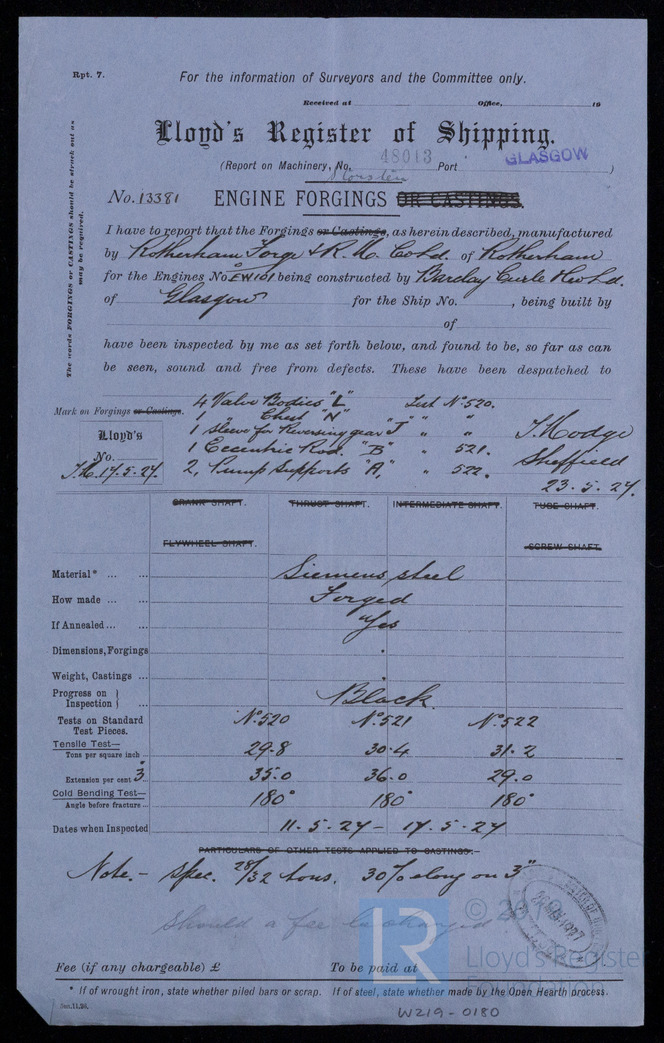 Rpt. 7.
For the information of Surveyors and the Committee only.
Received at Office, 19
Lloyd's Register of Shipping.
(Report on Machinery, No. 48013 Port GLASGOW )
No. 13381
ENGINE FORGINGS OR CASTINGS.
The words FORGINGS or CASTINGS should be struck out as may be required.
I have to report that the Forgings or Castings, as herein described, manufactured
by Rotherham Forge & R. M. Co Ld. of Rotherham
for the Engines No. EW101 being constructed by Barclay Curle & Co Ld.
of Glasgow for the Ship No. , being built by
of
have been inspected by me as set forth below, and found to be, so far as can
be seen, sound and free from defects. These have been despatched to
4 Valve Bodies "L" Test No 520.
Mark on Forgings or Castings.
1 " Chest "N" " "
1 Sleeve for Reversing gear "J" " "
1 Eccentric Rod. "B" " 521.
2, Pump Supports "A," " 522.
Lloyd's
No.
J.H. 17.5.27.
J. Hodge
Sheffield
23.5.27.
CRANK SHAFT. THRUST SHAFT. INTERMEDIATE SHAFT. TUBE SHAFT.
FLYWHEEL SHAFT. SCREW SHAFT.
Material* ... ... Siemens steel
How made ... ... Forged
If Annealed ... ... Yes
Dimensions, Forgings
Weight, Castings ...
Progress on Inspection } ... Black.
Tests on Standard Test Pieces. No 520 No 521 No 522
Tensile Test—
Tons per square inch ... 29.8 30.4 31.2
Extension per cent 3" 35.0 36.0 29.0
Cold Bending Test—
Angle before fracture ... 180° 180° 180°
Dates when Inspected 11.5.27 – 17.5.27
PARTICULARS OF OTHER TESTS APPLIED TO CASTINGS:-
Note.- Spec. 28/32 tons. 30% elong on 3"
Should a fee be charged
LR
© 2019
Lloyd's Register
Foundation
Fee (if any chargeable) £ To be paid at
* If of wrought iron, state whether piled bars or scrap. If of steel, state whether made by the Open Hearth process.
W219-0180